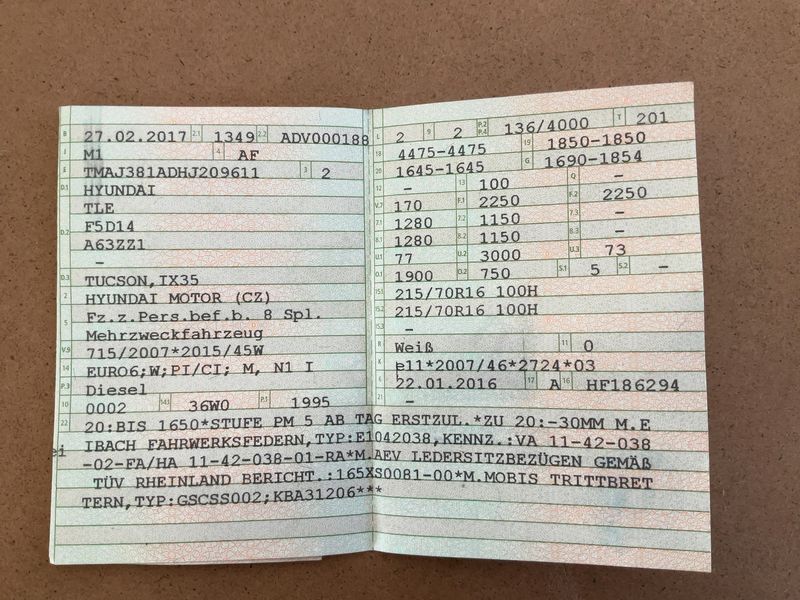 B 27.02.2017 2.1 1349 2.2 ADV000188
J M1 4 AF
E TMAJ381ADHJ209611 3 2
D.1 HYUNDAI
TLE
D.2 F5D14
A63ZZ1
–
D.3 TUCSON,IX35
2 HYUNDAI MOTOR (CZ)
5 Fz.z.Pers.bef.b. 8 Spl.
Mehrzweckfahrzeug
V.9 715/2007*2015/45W
14 EURO6;W;PI/CI; M, N1 I
P.3 Diesel
10 0002 14.1 36W0 P.1 1995
L 2 9 2 P.2 P.4 136/4000 T 201
18 4475-4475 19 1850-1850
20 1645-1645 G 1690-1854
12 – 13 100 Q –
V.7 170 F.1 2250 F.2 2250
7.1 1280 7.2 1150 7.3 –
8.1 1280 8.2 1150 8.3 –
U.1 77 U.2 3000 U.3 73
O.1 1900 O.2 750 S.1 5 S.2 –
15.1 215/70R16 100H
15.2 215/70R16 100H
15.3 –
R Weiß 11 0
K e11*2007/46*2724*03
6 22.01.2016 17 A 16 HF186294
21 –
22 20:BIS 1650*STUFE PM 5 AB TAG ERSTZUL.*ZU 20:-30MM M.E
IBACH FAHRWERKSFEDERN,TYP:E1042038,KENNZ.:VA 11-42-038
-02-FA/HA 11-42-038-01-RA*M.AEV LEDERSITZBEZÜGEN GEMÄß
TÜV RHEINLAND BERICHT.:165XS0081-00*M.MOBIS TRITTBRET
TERN,TYP:GSCSS002;KBA31206***